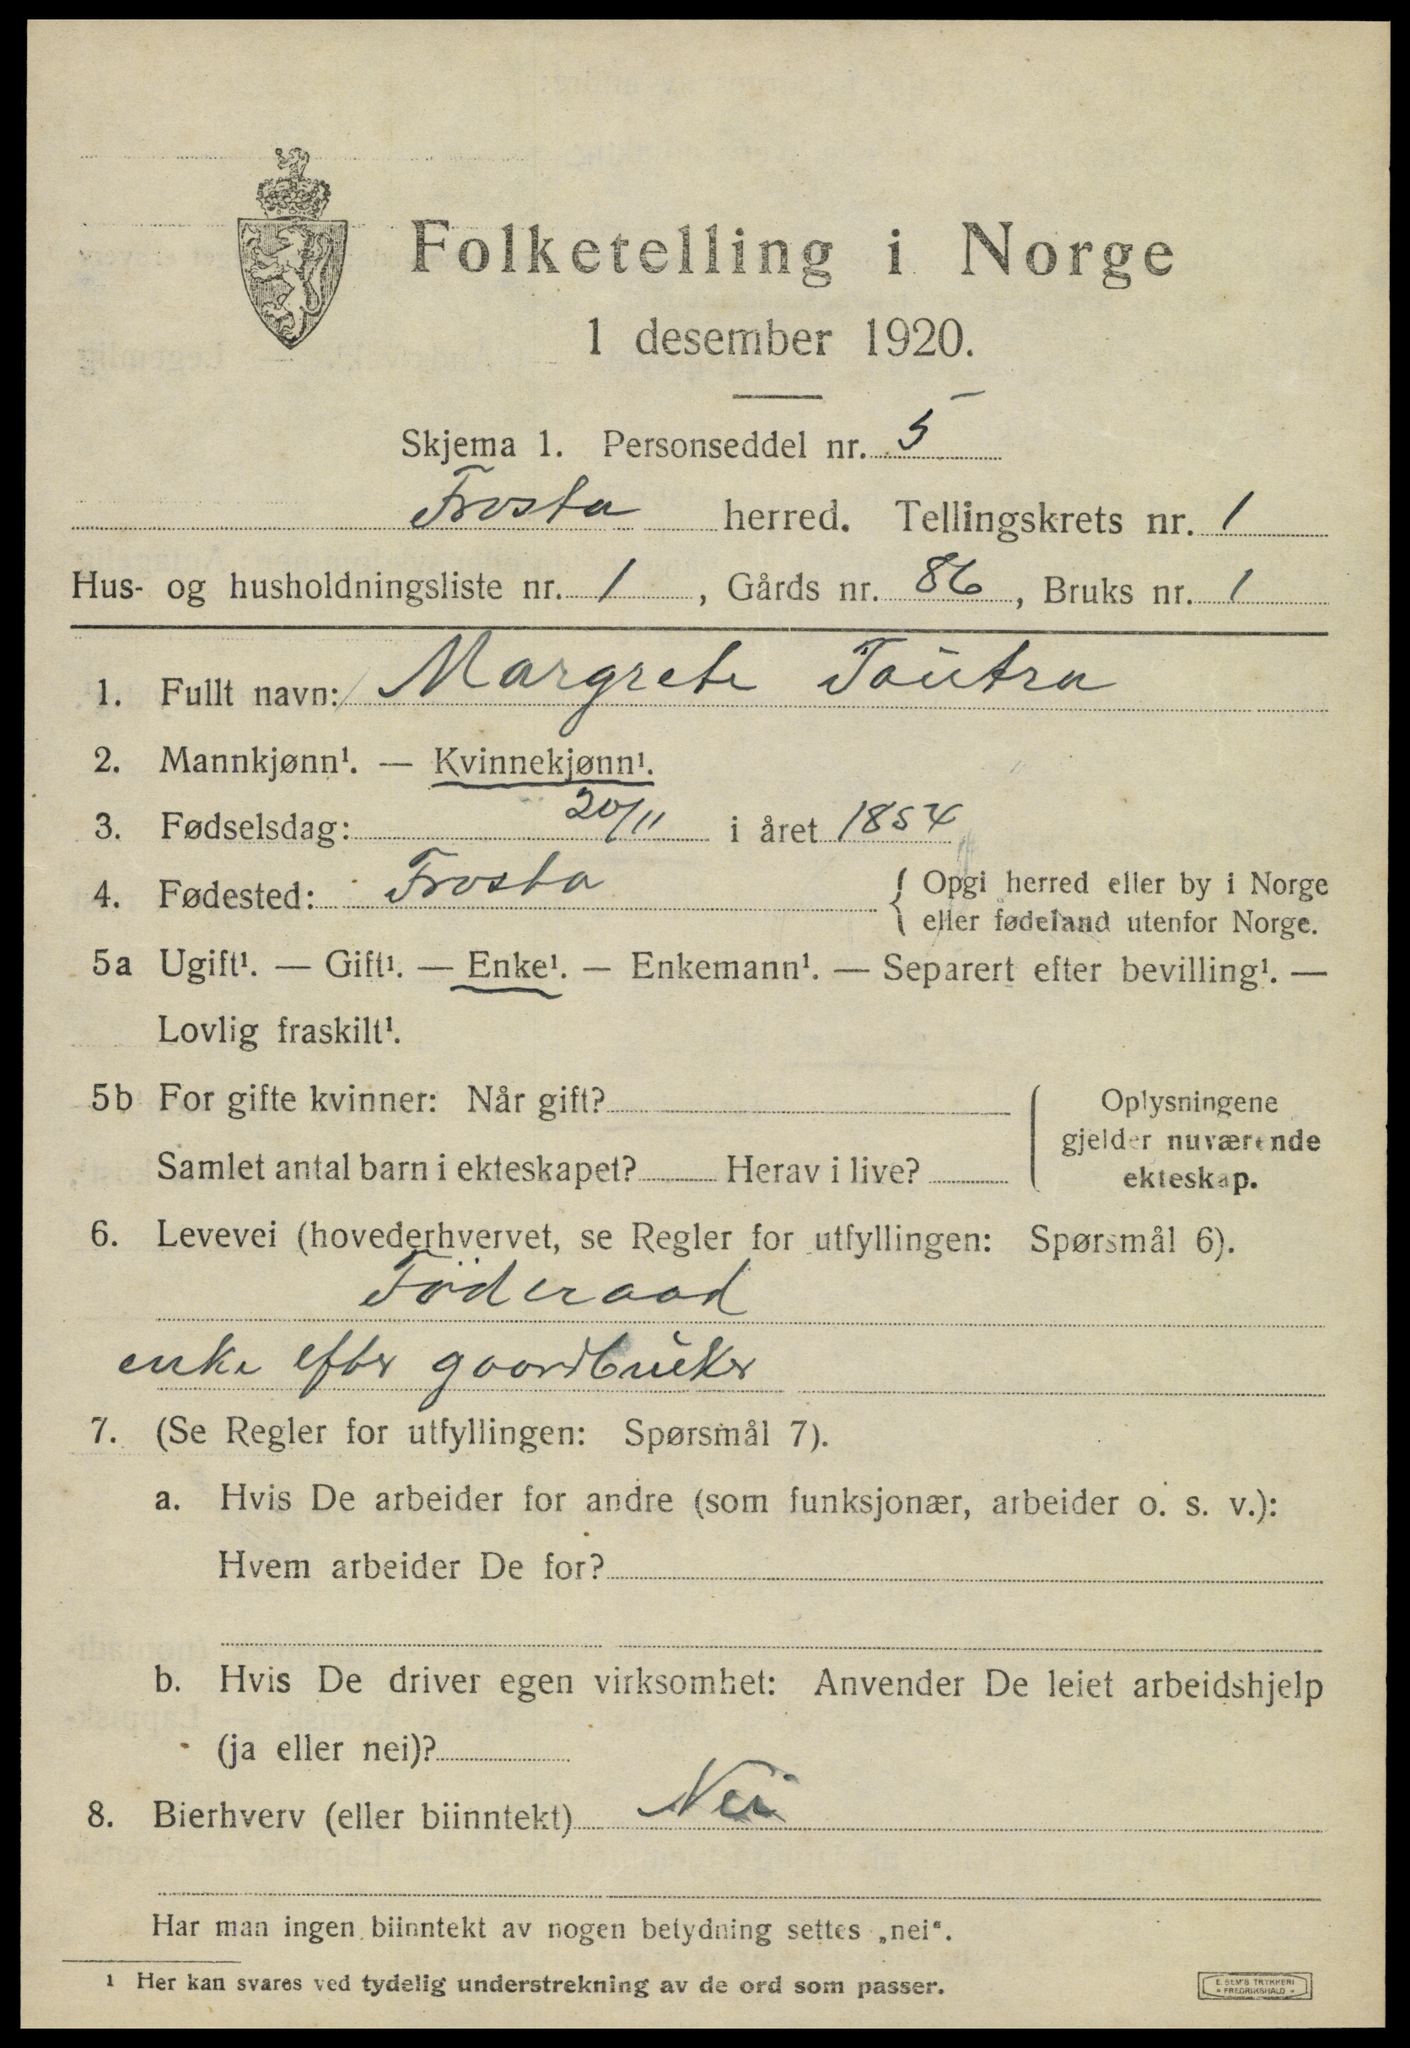 Folketelling i Norge
1 desember 1920.
Skjema 1. Personseddel nr. 5
Frosta herred. Tellingskrets nr. 1
Hus- og husholdningsliste nr. 1, Gårds nr. 86, Bruks nr. 1
1. Fullt navn: Margrete Tautra
2. Mannkjønn¹. — Kvinnekjønn¹.
3. Fødselsdag: 20/11 i året 1854
4. Fødested: Frosta { Opgi herred eller by i Norge
eller fødeland utenfor Norge.
5a Ugift¹. — Gift¹. — Enke¹. — Enkemann¹. — Separert efter bevilling¹. —
Lovlig fraskilt¹.
5b For gifte kvinner: Når gift? Oplysningene
gjelder nuværende
Samlet antal barn i ekteskapet? Herav i live? ekteskap.
6. Levevei (hovederhvervet, se Regler for utfyllingen: Spørsmål 6).
Föderaad
enke efter gaardbruker
7. (Se Regler for utfyllingen: Spørsmål 7).
a. Hvis De arbeider for andre (som funksjonær, arbeider o. s. v.):
Hvem arbeider De for?
b. Hvis De driver egen virksomhet: Anvender De leiet arbeidshjelp
(ja eller nei)?
8. Bierhverv (eller biinntekt) Nei
Har man ingen biinntekt av nogen betydning settes „nei“.
1 Her kan svares ved tydelig understrekning av de ord som passer.
E. SEM'S TRYKKERI
* FREDRIKSHALD *